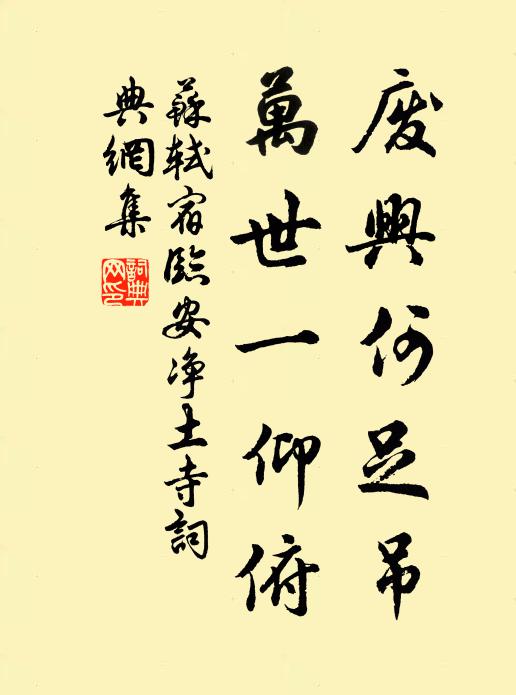 废興何足吊
萬世一仰俯
蘇軾宿臨安净土寺詞
典網集
詞典
网印